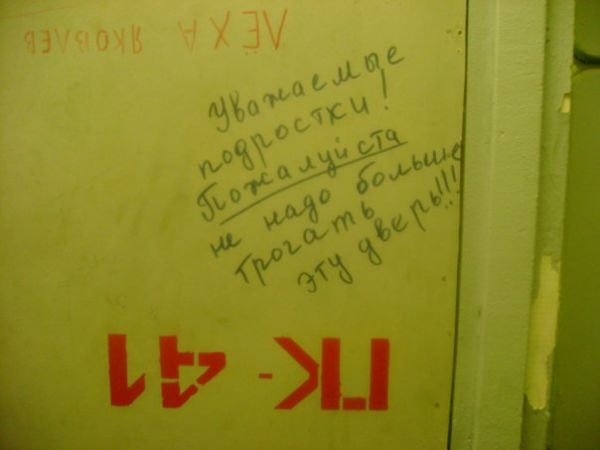 ЛЁХА ЯКОВЛЕВ
Уважаемые
подростки!
Пожалуйста
не надо больше
трогать
эту дверь!!!
ПК-41